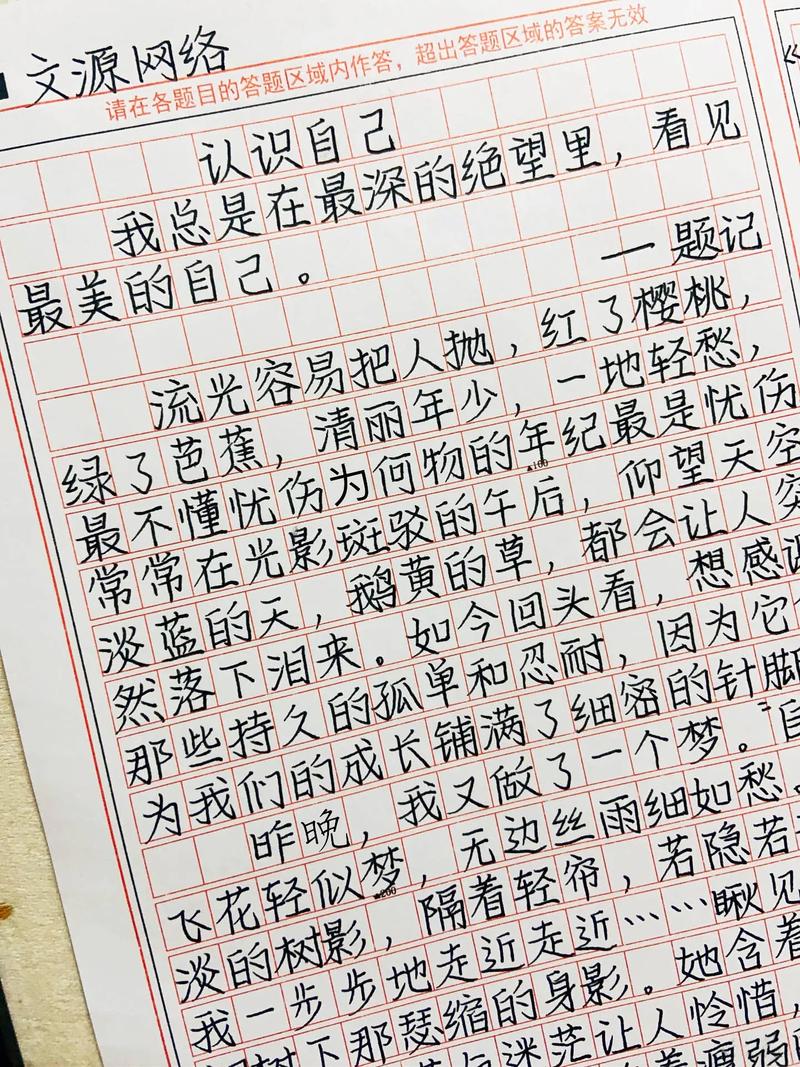 文源网络
请在各题目的答题区域内作答，超出答题区域的答案无效
认识自己
我总是在最深的绝望里，看见
最美的自己。
一题记
流光容易把人抛，红了樱桃，
绿了芭蕉，清丽年少，一地轻愁，
最不懂忧伤为何物的年纪最是忧伤
▲100
常常在光影斑驳的午后，仰望天空
淡蓝的天，鹅黄的草，都会让人突
然落下泪来。如今回头看，想感谢
那些持久的孤单和忍耐，因为它
为我们的成长铺满了细密的针脚
昨晚，我又做了一个梦。"自
飞花轻似梦，无边丝雨细如愁。
▲200
淡的树影，隔着轻帘，若隐若
我一步步地走近走近……瞅见
树下那瑟缩的身影。她含着
迷茫让人怜惜，
着瘦弱